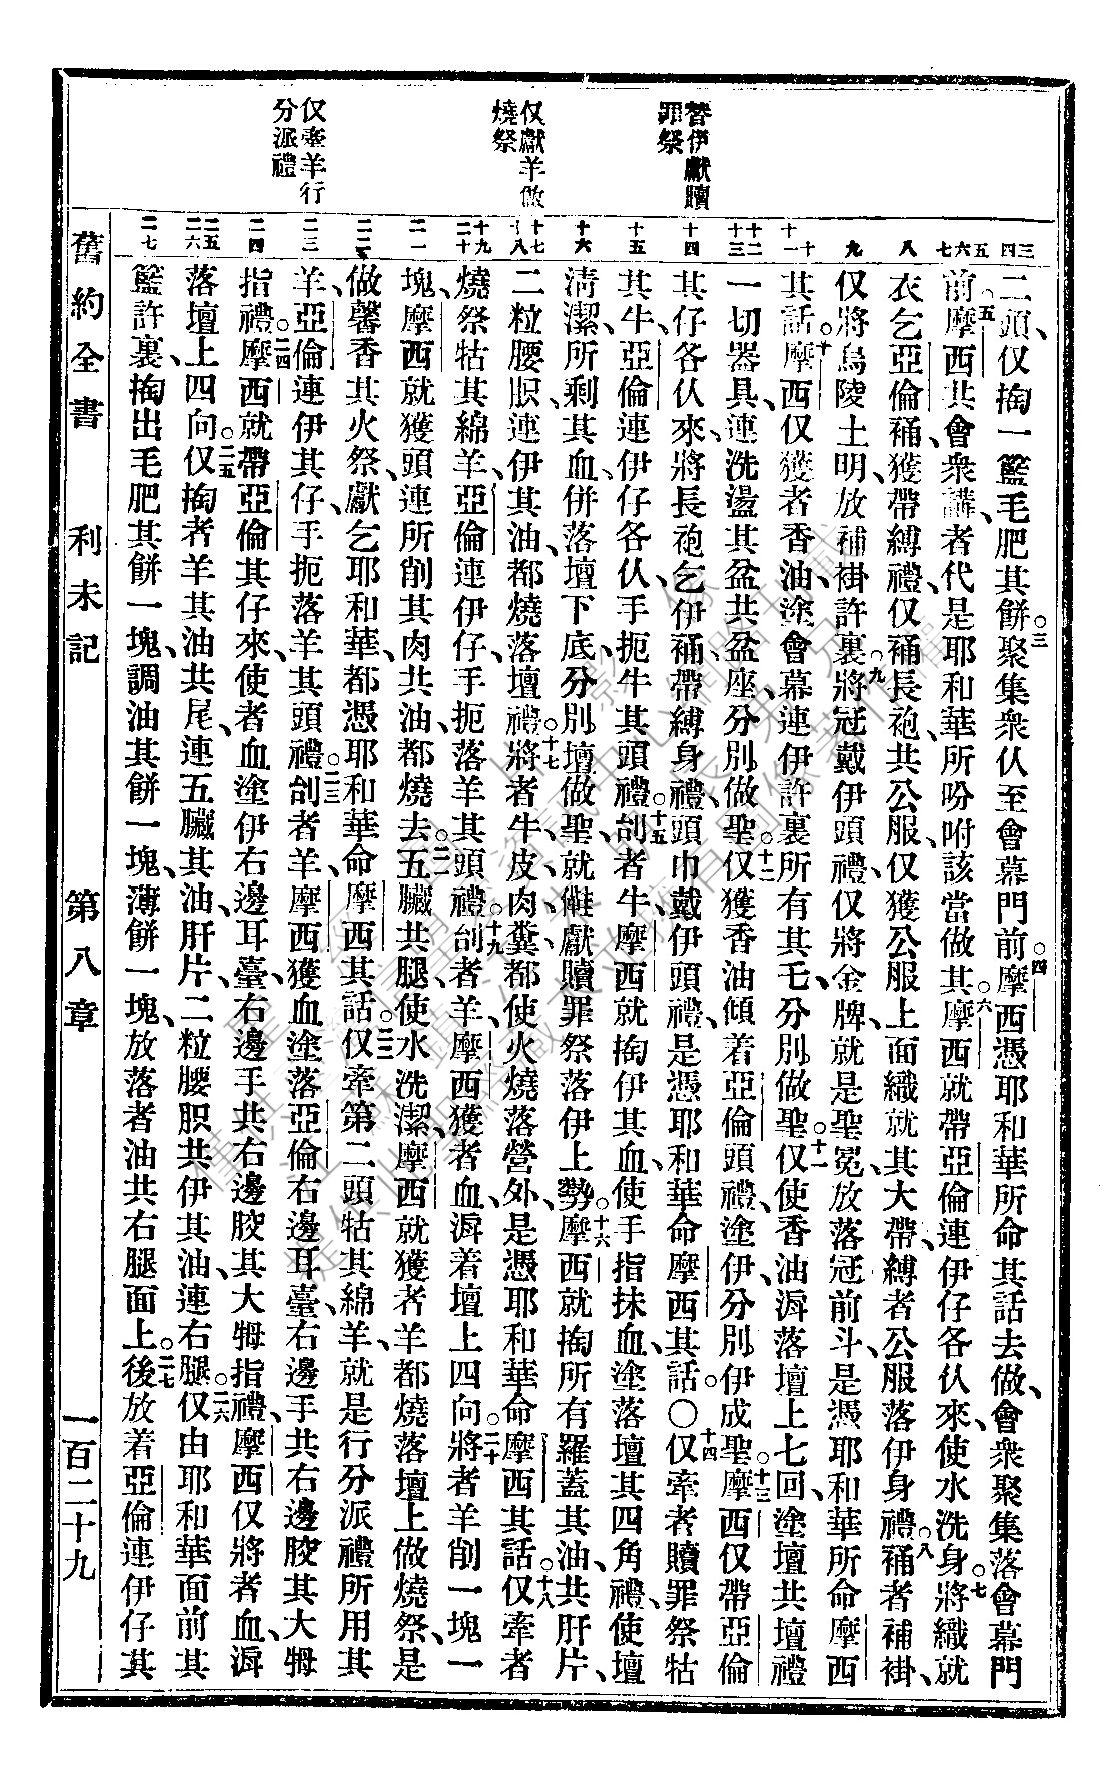 替伊獻贖
罪祭
仅獻羊做
燒祭
仅牽羊行
分派禮
三
四
五
六
七
八
九
十
十一
十二
十三
十四
十五
十六
十七
十八
十九
二十
二一
二二
二三
二四
二五
二六
二七
二頭、仅掏一籃毛肥其餅。三聚集衆仈至會幕門前。四摩西憑耶和華所命其話去做、會衆聚集落會幕門
前。五摩西共會衆講、者代是耶和華所吩咐該當做其。六摩西就帶亞倫連伊仔各仈來、使水洗身。七將織就
衣乞亞倫𧙕、獲帶縛禮、仅𧙕長袍共公服、仅獲公服上面織就其大帶、縛者公服落伊身禮。八𧙕者補褂、
仅將烏陵土明、放補褂許裏。九將冠戴伊頭禮、仅將金牌、就是聖冕、放落冠前斗、是憑耶和華所命摩西
其話。十摩西仅獲者香油、塗會幕連伊許裏所有其乇、分別做聖。十一仅使香油溽落壇上七回、塗壇共壇禮
一切器具、連洗盪其盆共盆座、分別做聖。十二仅獲香油傾着亞倫頭禮、塗伊、分別伊成聖。十三摩西仅帶亞倫
其仔各仈來、將長袍乞伊𧙕、帶縛身禮、頭巾戴伊頭禮、是憑耶和華命摩西其話。〇十四仅牽者贖罪祭牯
其牛、亞倫連伊仔各仈、手扼牛其頭禮。十五刣者牛、摩西就掏伊其血、使手指抹血、塗落壇其四角禮、使壇
清潔、所剩其血、併落壇下底、分別壇做聖、就𡅏獻贖罪祭落伊上勢。十六摩西就掏所有羅蓋其油、共肝片、
二粒腰脤、連伊其油、都燒落壇禮。十七將者牛、皮肉糞都使火燒落營外、是憑耶和華命摩西其話。十八仅牽者
燒祭牯其綿羊、亞倫連伊仔、手扼落羊其頭禮。十九刣者羊、摩西獲者血、溽着壇上四向。二十將者羊削一塊一
塊、摩西就獲頭連所削其肉共油、都燒去。二一五臟共腿、使水洗潔、摩西就獲者羊都燒落壇上做燒祭、是
做馨香其火祭、獻乞耶和華、都憑耶和華命摩西其話。二二仅牽第二頭牯其綿羊、就是行分派禮所用其
羊、亞倫連伊其仔、手扼落羊其頭禮。二三刣者羊、摩西獲血塗落亞倫右邊耳臺、右邊手共右邊骹其大𧿳
指禮。二四摩西就帶亞倫其仔來、使者血塗伊右邊耳臺、右邊手共右邊骹其大𧿳指禮、摩西仅將者血、溽
落壇上四向。二五仅掏者羊其油共尾、連五臟其油、肝片、二粒腰脤共伊其油、連右腿。二六仅由耶和華面前其
籃許裏、掏出毛肥其餅一塊、調油其餅一塊、薄餅一塊、放落者油共右腿面上。二七後放着亞倫連伊仔其
舊約全書　利未記　第八章　一百二十九